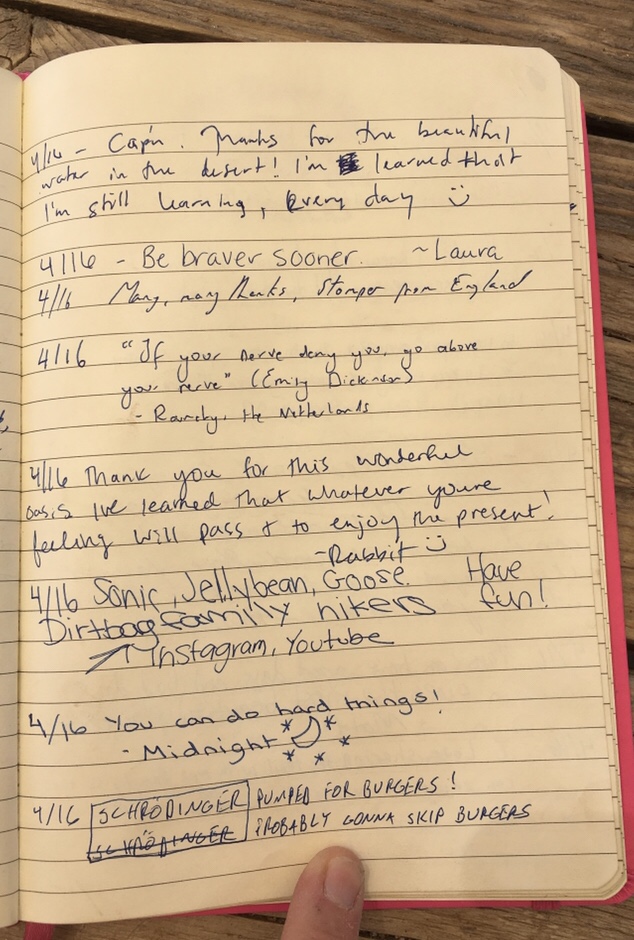 4/16 - Cap'n. Thanks for the beautiful
water in the desert! I'm learned that
I'm still learning, Every day
4/16 - Be braver sooner. ~Laura
4/16 Many, many thanks, Stomper from England
4/16 "If your nerve deny you, go above
your nerve" (Emily Dickinson)
- the Netherlands
4/16 Thank you for this wonderful
oasis Ive learned that whatever youre
feeling will pass & to enjoy the present!
-Rabbit
4/16 Sonic, Jellybean, Goose. Have
Dirtbag familly hikers fun!
Instagram, Youtube
4/16 You can do hard things!
- Midnight
4/16 SCHRÖDINGER PUMPED FOR BURGERS!
SCHRÖDINGER PROBABLY GONNA SKIP BURGERS